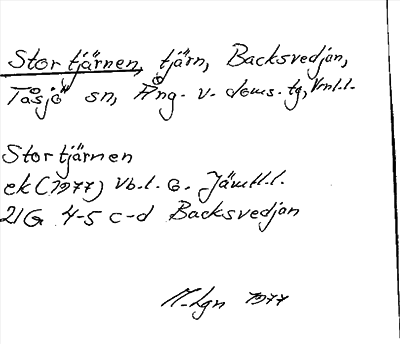 Stor tjärnen, tjärn, Backsvedjan,
Tåsjö sn, Ång. v. doms. tg, Vrnl.l.
Stor tjärnen
ek (1977) Vb.l. o. Jämtl.l.
21G 4-5 c-d Backsvedjan
M-lgn 1977